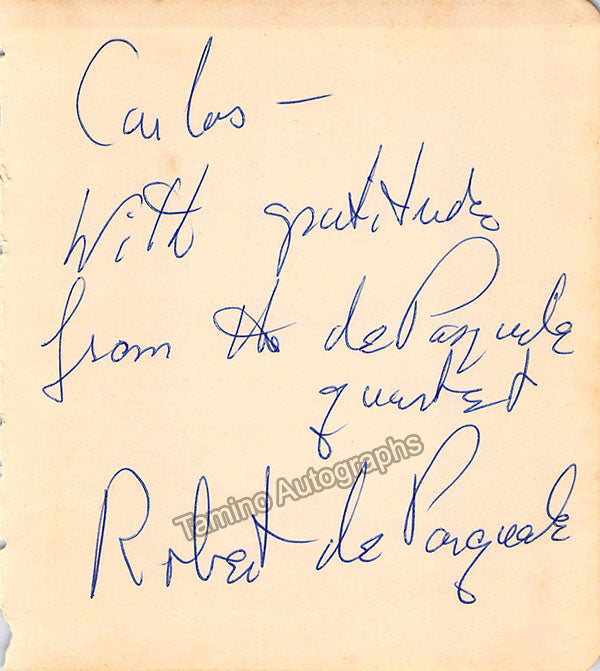 Carlos —
With gratitude
from the de Pasquale
quartet
Tamino Autographs
Robert de Pasquale